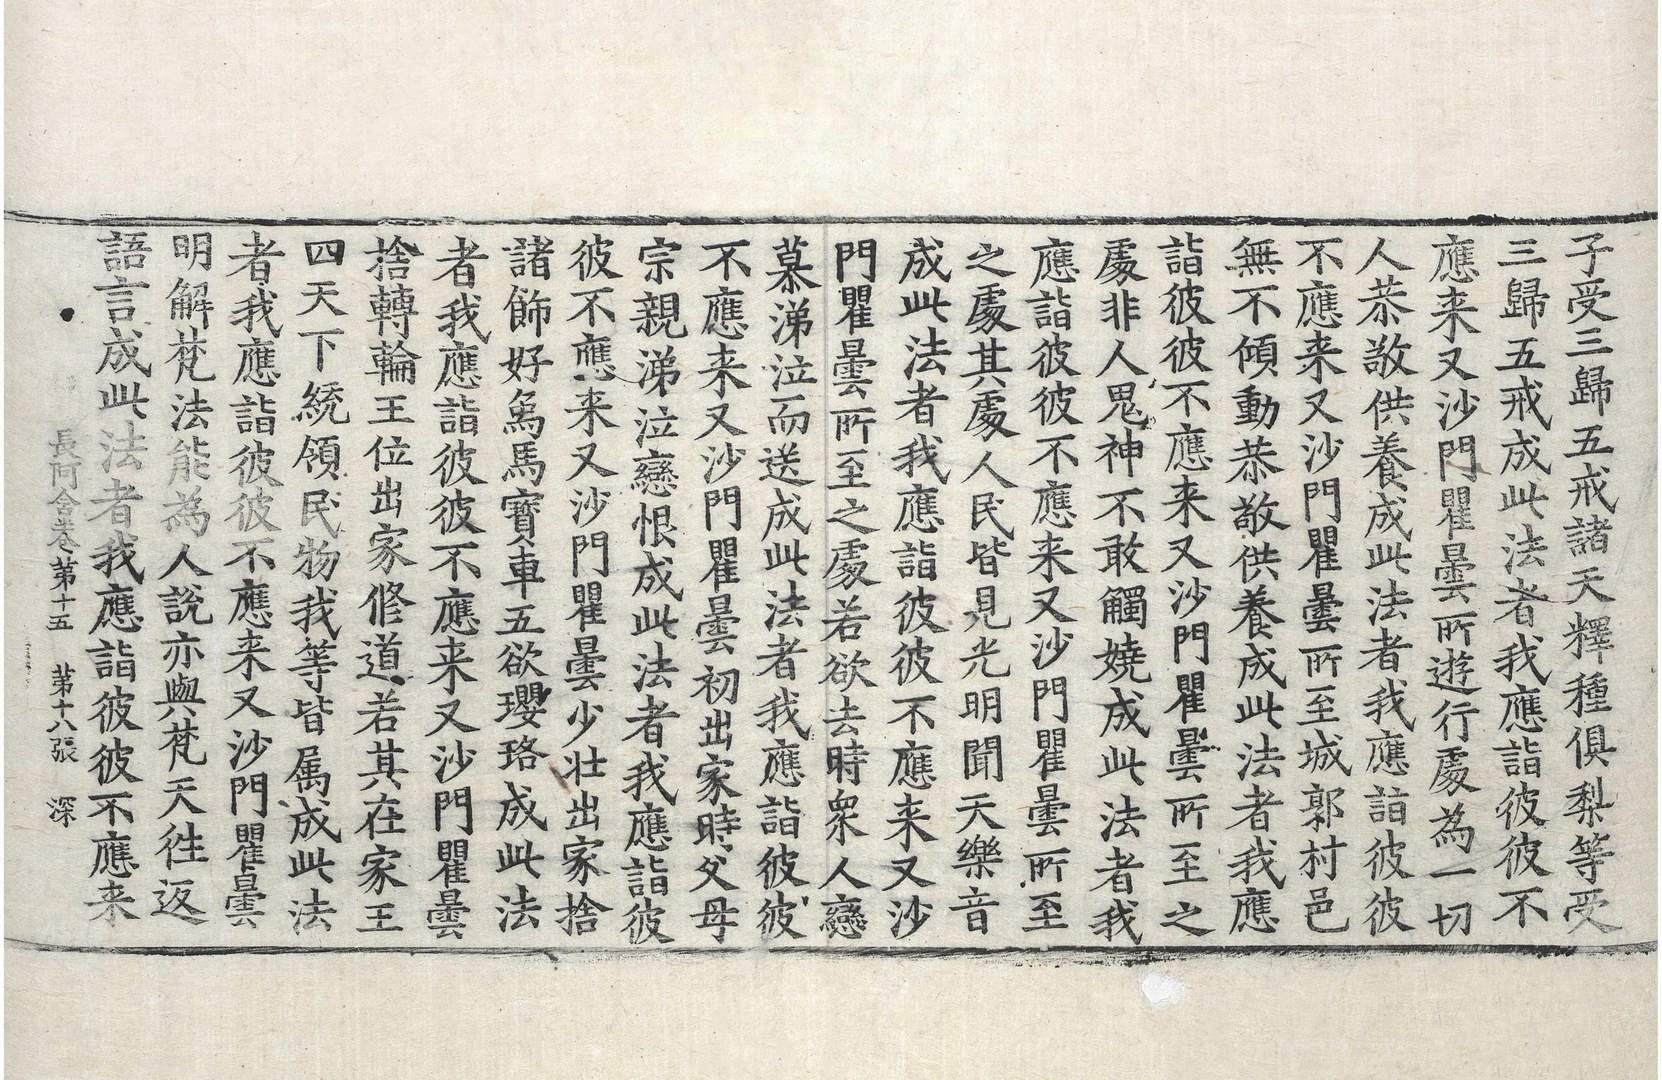 子受三歸五戒諸天釋種俱梨等受
三歸五戒成此法者我應詣彼彼不
應来又沙門瞿曇所遊行處為一切
人恭敬供養成此法者我應詣彼彼
不應来又沙門瞿曇所至城郭村邑
無不傾動恭敬供養成此法者我應
詣彼彼不應来又沙門瞿曇所至之
處非人鬼神不敢觸嬈成此法者我
應詣彼彼不應来又沙門瞿曇所至
之處其處人民皆見光明聞天樂音
成此法者我應詣彼彼不應来又沙
門瞿曇所至之處若欲去時眾人戀
慕涕泣而送成此法者我應詣彼彼
不應来又沙門瞿曇初出家時父母
宗親涕泣戀恨成此法者我應詣彼
彼不應来又沙門瞿曇少壮出家捨
諸飾好象馬寶車五欲瓔珞成此法
者我應詣彼彼不應来又沙門瞿曇
捨轉輪王位出家修道若其在家王
四天下統領民物我等皆属成此法
者我應詣彼彼不應来又沙門瞿曇
明解梵法能為人說亦與梵天徃返
語言成此法者我應詣彼彼不應来
長阿含卷第十五 第十八張 深